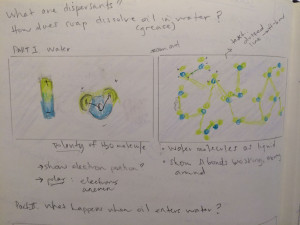 What are dispersants?
How does soap dissolve oil in water?
(grease)
PART I Water
zoom out
polarity of this molecule
→ show electron position?
→ polar: electrons
uneven
• Water molecules as liquid
• show H bonds
around
Part II. What happens when oil enters water?